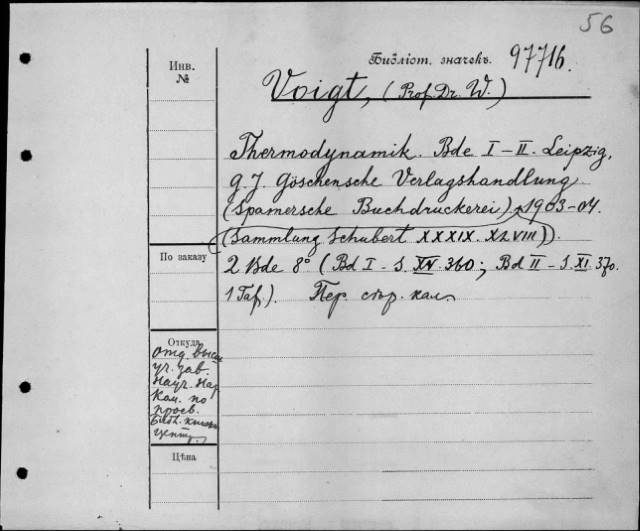 56
Библіот. значекъ. 97716.
Инв.
№
Voigt, (Prof. Dr. W.)
Thermodynamik. Bde I – II. Leipzig,
G. J. Göschensche Verlagshandlung
(Spamersche Buchdruckerei), 1903-04.
(Sammlung Schubert XXXIX. XLVIII)).
По заказу
2 Bde 8° (Bd I – S. XV. 360; Bd II – S. XI. 370.
1 Taf.). Пер. стор. кал.
Откуда
Отд. высш
уч. зав.
Науч. Нар
Ком. по
просв.
Библ.
центр.
Цѣна